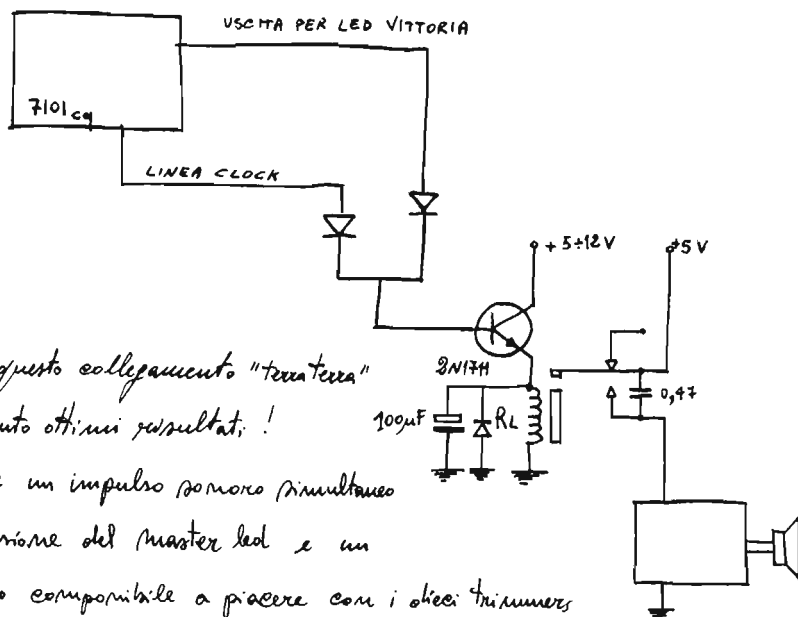 USCITA PER LED VITTORIA
7101 cq
LINEA CLOCK
+ 5÷12 V
+5 V
2N1711
100µF
RL
0,47
questo collegamento "terra terra"
uto ottimi risultati !
un impulso sonoro simultaneo
sione del master led e un
o componibile a piacere con i dieci trimmers